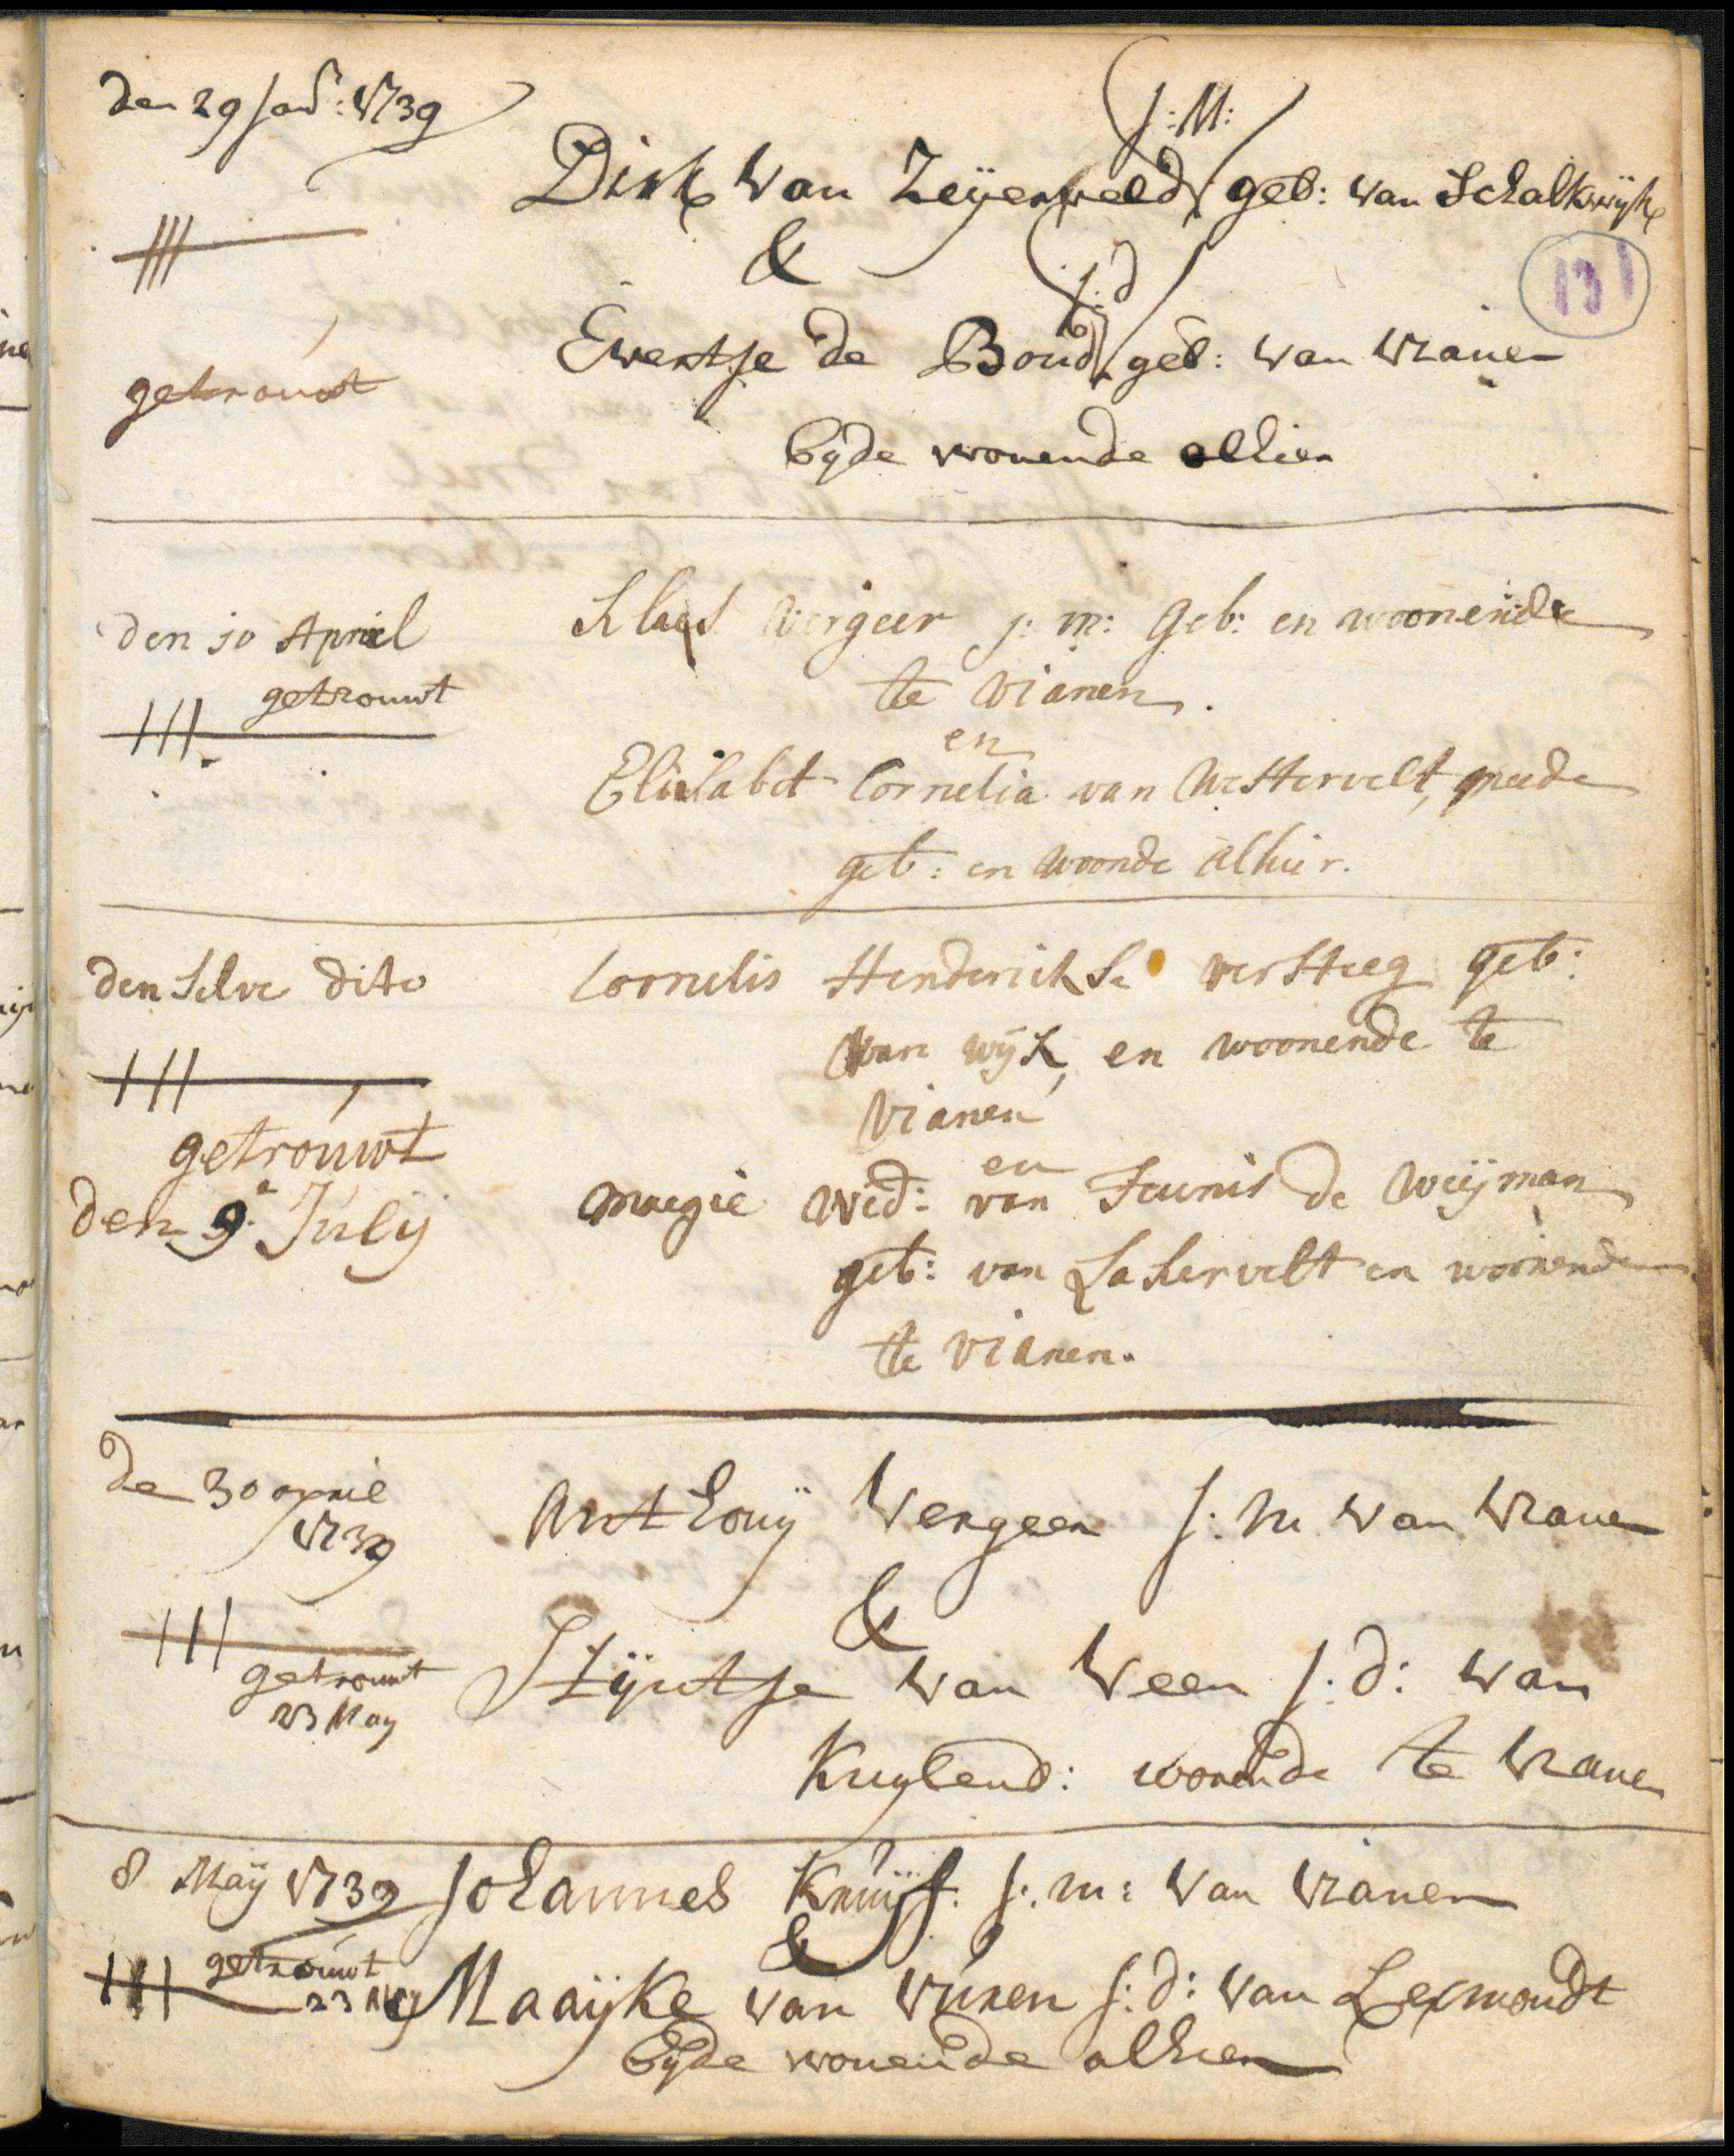 den 29 Jan: 1739
j: M:
Dirk van Zeyenveeld geb: van Schalkwijk
&
j: d
131
Evertje de Boud geb: van vianen
getrouwt
byde wonende alhier
den 10 April
Klaes vergeer j: m: Geb: en woonende
getrouwt
te vianen.
en
Elisabet Cornelia van Westervelt, meede
geb: en woonde alhier.
den selve dito
Cornelis Henderickse versteeg geb:
van wijk, en woonende te
vianen
getrouwt
en
maegie wed: van Teunis de weijman
den 9e Julij
geb: van Lakervelt en woonende
te vianen.
de 30 april
1739
Anthony Vergeer j: m van vianen
&
getrouwt
23 May
Stijntje van Veen j: d: van
Kuylenb: wonende te vianen
8 Maÿ 1739 Johannes Kruijf. j: m: van vianen
&
getrouwt
23 May
Maaijke van vuren j: d: van Lexmondt
byde wonende alhier